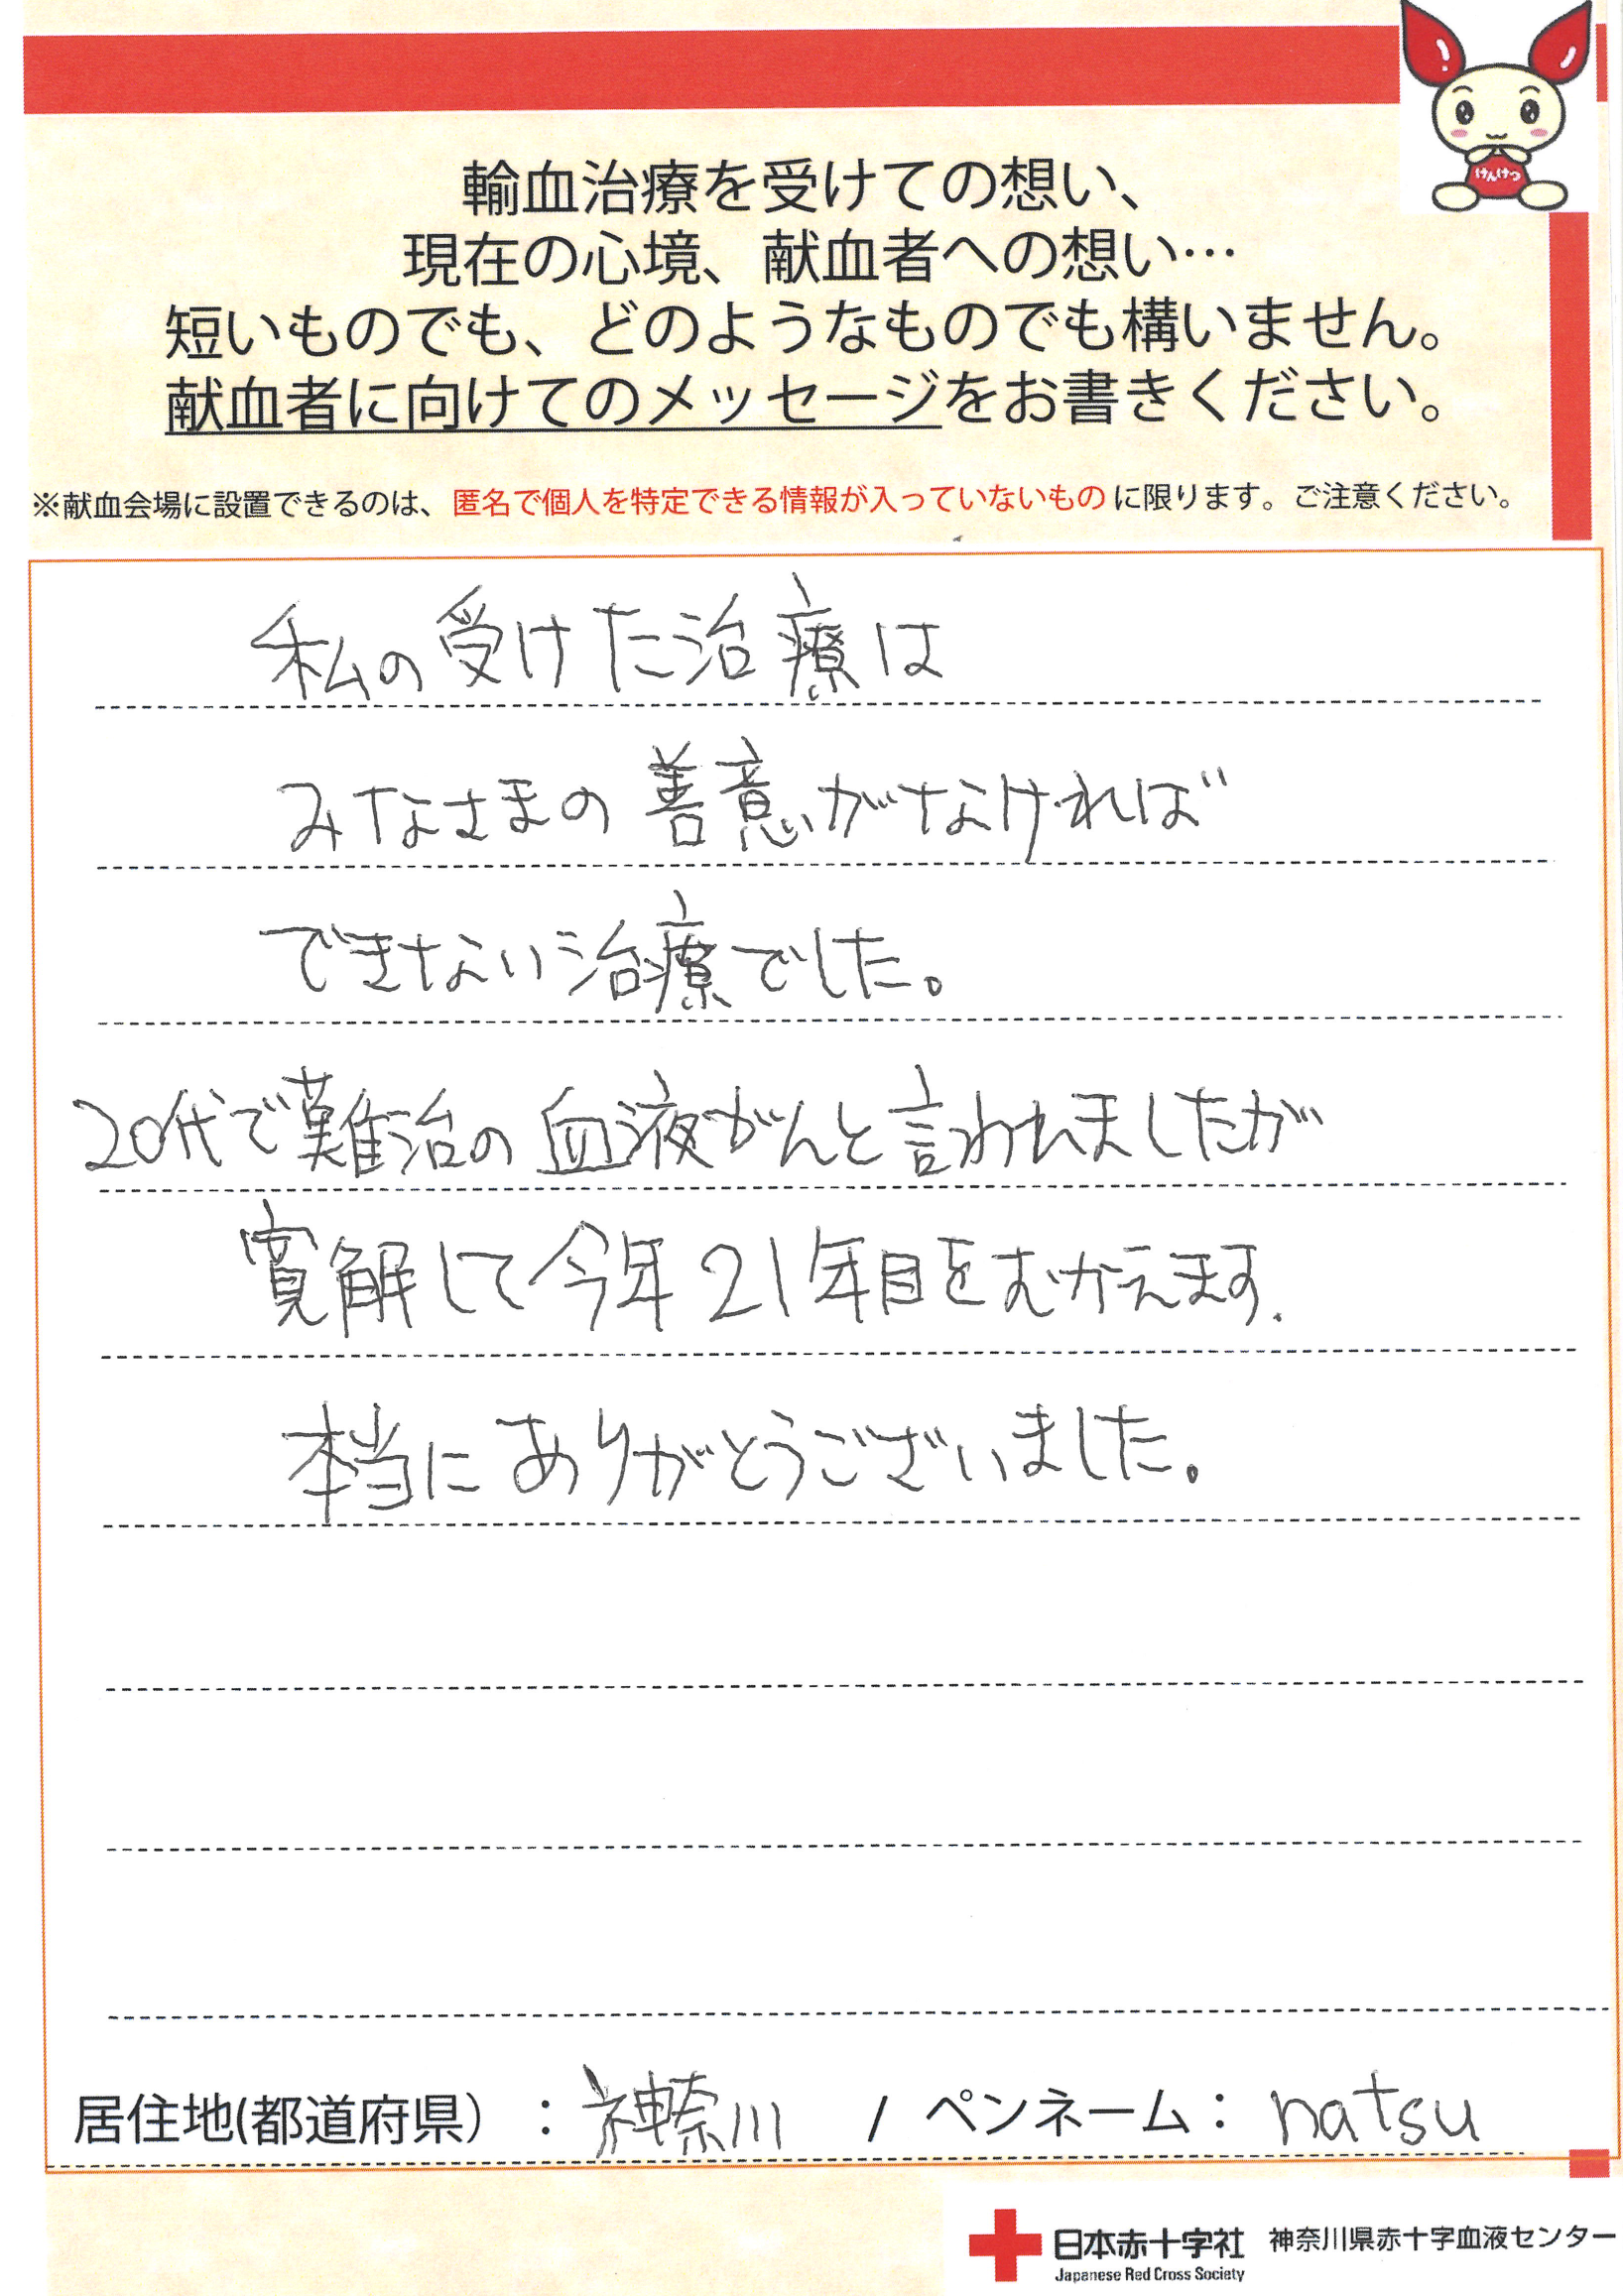 けんけつ
輸血治療を受けての想い、
現在の心境、献血者への想い…
短いものでも、どのようなものでも構いません。
献血者に向けてのメッセージをお書きください。
※献血会場に設置できるのは、匿名で個人を特定できる情報が入っていないものに限ります。ご注意ください。
私の受けた治療は
みなさまの善意がなければ
できない治療でした。
20代で難治の血液がんと言われましたが
寛解して今年21年目をむかえます.
本当にありがとうございました。
居住地(都道府県）：神奈川 / ペンネーム：natsu
日本赤十字社 神奈川県赤十字血液センター
Japanese Red Cross Society